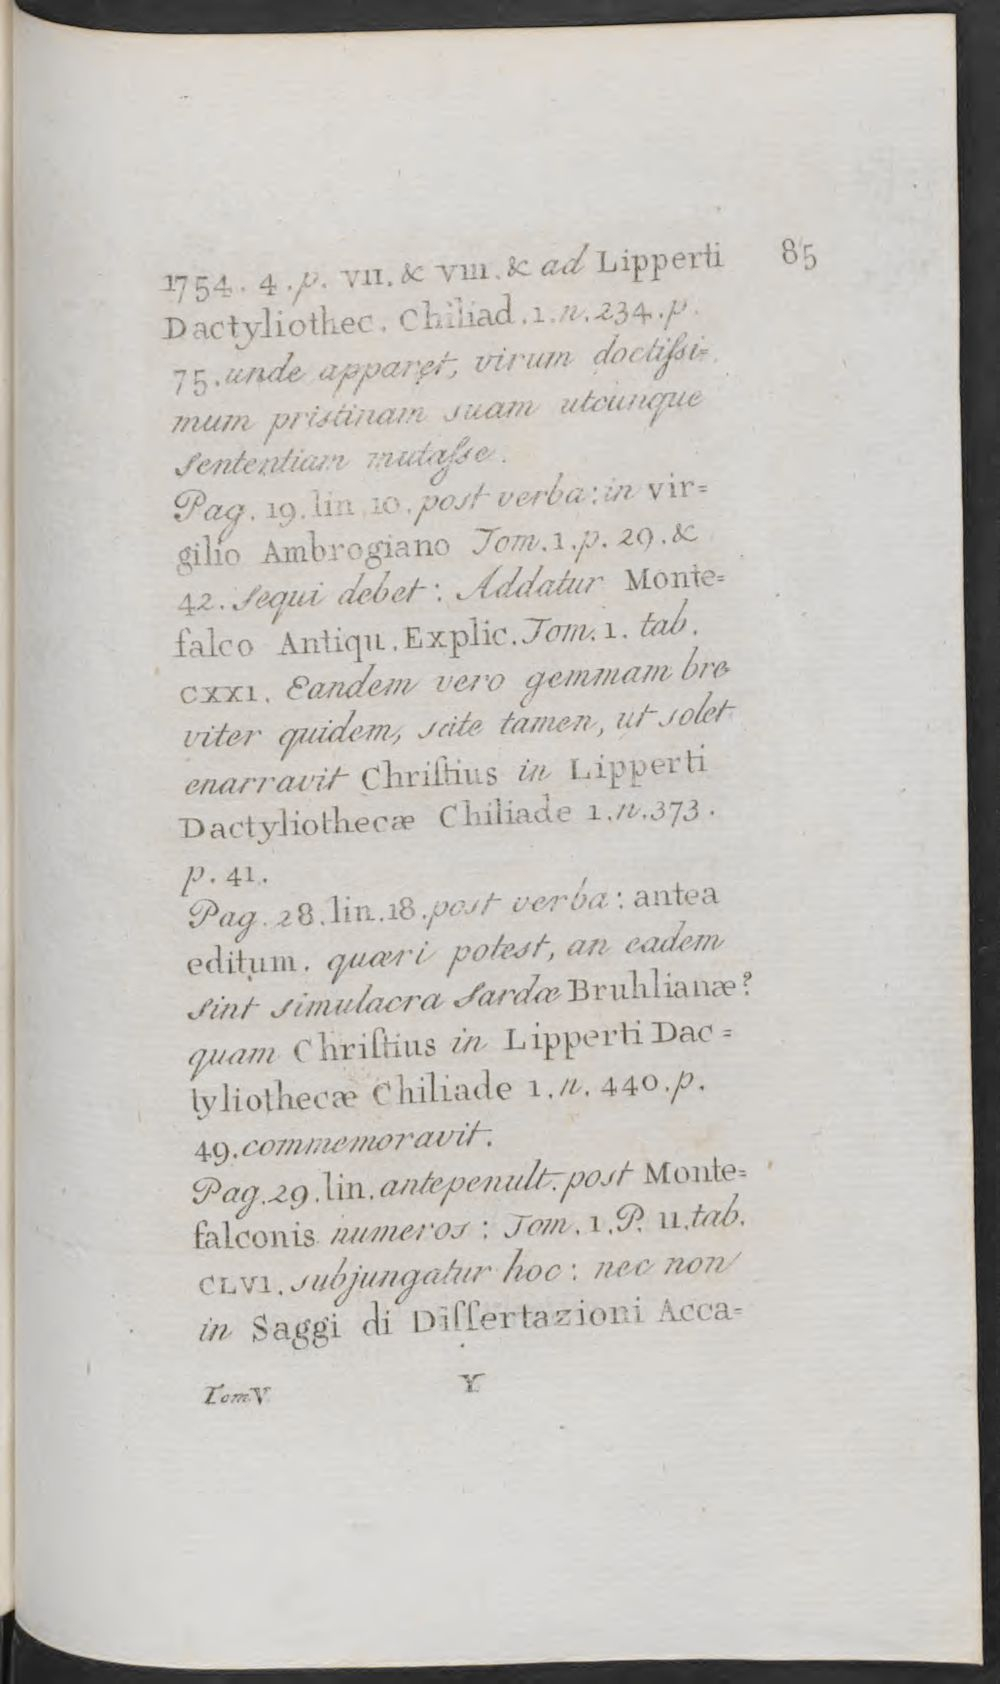 85
1754. 4. p. VII. & VIII. & ad Lipperti
Dactyliothec. Chiliad. 1. n. 234. p.
75. unde apparet, virum doctiſsi=
mum pristinam suam utcunque
Sententiam mutaſse.
Pag. 19. lin 10. post verba: in vir=
gilio Ambrogiano Tom. 1. p. 29. &
42. Sequi debet: Addatur Monte=
falco Antiqu. Explic. Tom. 1. tab.
CXXI. Eandem vero gemmam bre
viter quidem, scite tamen, ut solet
enarravit Chriſtius in Lipperti
Dactyliothecæ Chiliade 1. n. 373.
p. 41.
Pag. 28. lin. 18. post verba: antea
editum. quæri potest, an eadem
Sint simulacra Sardæ Bruhlianæ?
quam Chriſtius in Lipperti Dac=
tyliothecæ Chiliade 1. n. 440. p.
49. commemoravit.
Pag. 29. lin. antepenult. post Monte=
falconis numeros: Tom. 1. P. II. tab.
CLVI. subjungatur hoc: nec non
in Saggi di Diſſertazioni Acca=
Tom V. Y